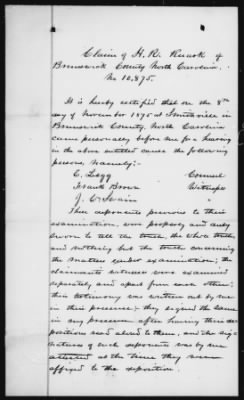 Claim of H. R. Ruark of
Brunswick County North Carolina.
No 10,875.
It is hereby certified that on the 8th
day of November 1875 at Smithville in
Brunswick County, North Carolina
came personally before me for a hearing
in the above entitled cause the following
persons, namely:
C. Legg Counsel
Frank Brown Witnesses
J. C. Swain
These deponents previous to their
examination, were properly and duly
sworn to tell the truth, the whole truth,
and nothing but the truth concerning
the matter under examination; the
claimants witnesses were examined
separately and apart from each other;
their testimony was written out by me
in their presence; they signed the same
in my presence after having their de-
positions read aloud to them, and the sig-
natures of such deponents was by me
attested at the time they were
affixed to the deposition.